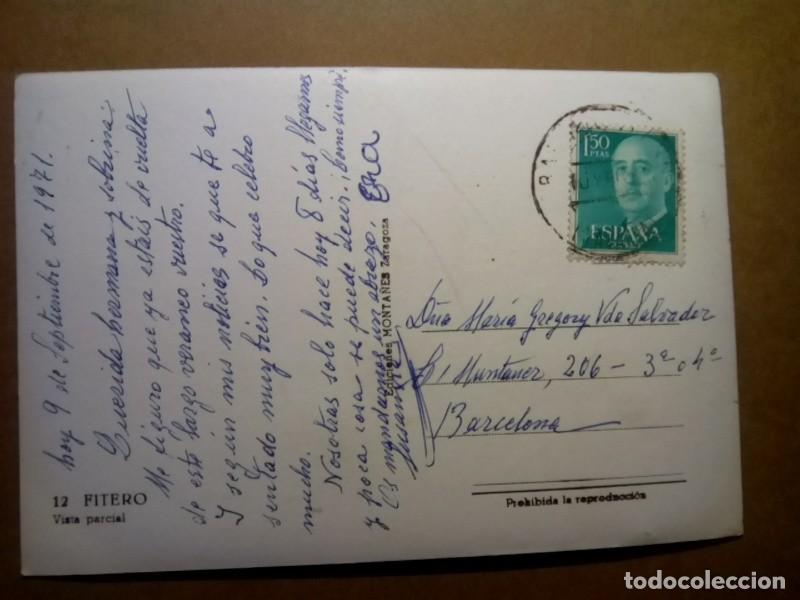 hoy 9 de Septiembre de 1971.
Querida hermana y sobrina:
Me figuro que ya estais de vuelta
de este largo veraneo vuestro.
Y según mis noticias se que te a
sentado muy bien. Lo que celebro
mucho.
Nosotras solo hace hoy 8 días llegamos
y poca cosa se puede decir, ¡como siempre!
Os mandamos un abrazo.
Ediciones MONTAÑES Zaragoza
1,50
PTAS
ESPAÑA
Dña María Gregory Vda Salvador
C/ Muntaner, 206 - 3º 4ª
Barcelona
12 FITERO
Vista parcial
Prohibida la reproducción
todocoleccion
todocoleccion.net